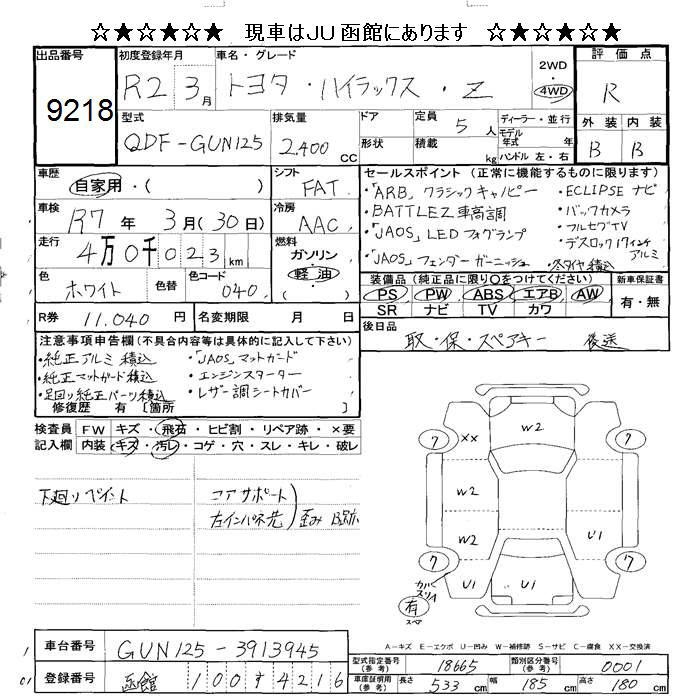 ☆★☆★☆★ 現車はJU函館にあります ☆★☆★☆★
出品番号 初度登録年月 車名・グレード 2WD・4WD 評価点
9218 R2 3月 トヨタ・ハイラックス・Z R
型式 排気量 ドア 定員 ディーラー・並行 外装 内装
QDF-GUN125 2,400CC 形状 積載 5人 kg モデル年式 年 ハンドル 左・右 B B
車歴 シフト セールスポイント(正常に機能するものに限ります)
自家用・( ) FAT
・「ARB」クラシックキャノピー ・ECLIPSE ナビ
車検 R7年 3月(30日) 冷房 AAC
・BATTLEZ車高調 ・バックカメラ
・「JAOS」LEDフォグランプ ・フルセグTV
走行 4万0千023km 燃料 ガソリン 軽油
・「JAOS」フェンダーガーニッシュ ・デスロック17インチアルミ
・冬タイヤ積込
色 ホワイト 色替 色コード 040
装備品(純正品に限り○をつけてください) 新車保証書
PS PW ABS エアB AW 有・無
SR ナビ TV カワ
R券 11,040円 名変期限 月 日
後日品 取・保・スペアキー 後送
注意事項申告欄(不具合内容等は具体的に記入して下さい)
・純正アルミ積込 ・「JAOS」マットガード
・純正マットガード積込 ・エンジンスターター
・足回り純正パーツ積込 ・レザー調シートカバー
修復歴 有[箇所 ]
検査員 FW キズ・飛石・ヒビ割・リペア跡・×要
記入欄 内装 キズ・汚レ・コゲ・穴・スレ・キレ・破レ
下廻りペイント コアサポート
左インパネ先 歪み B跡
W2
7 XX 7
W2
W2 U1
7 7
カバースリA U1 U1
有
スペア
A-キズ E-エクボ U-凹み W-補修跡 S-サビ C-腐食 XX-交換済
車台番号 GUN125-3913945
型式指定番号(参考) 18665 類別区分番号(参考) 0001
登録番号 函館 100す4216
車庫証明用(参考) 長さ 533cm 幅 185cm 高さ 180cm